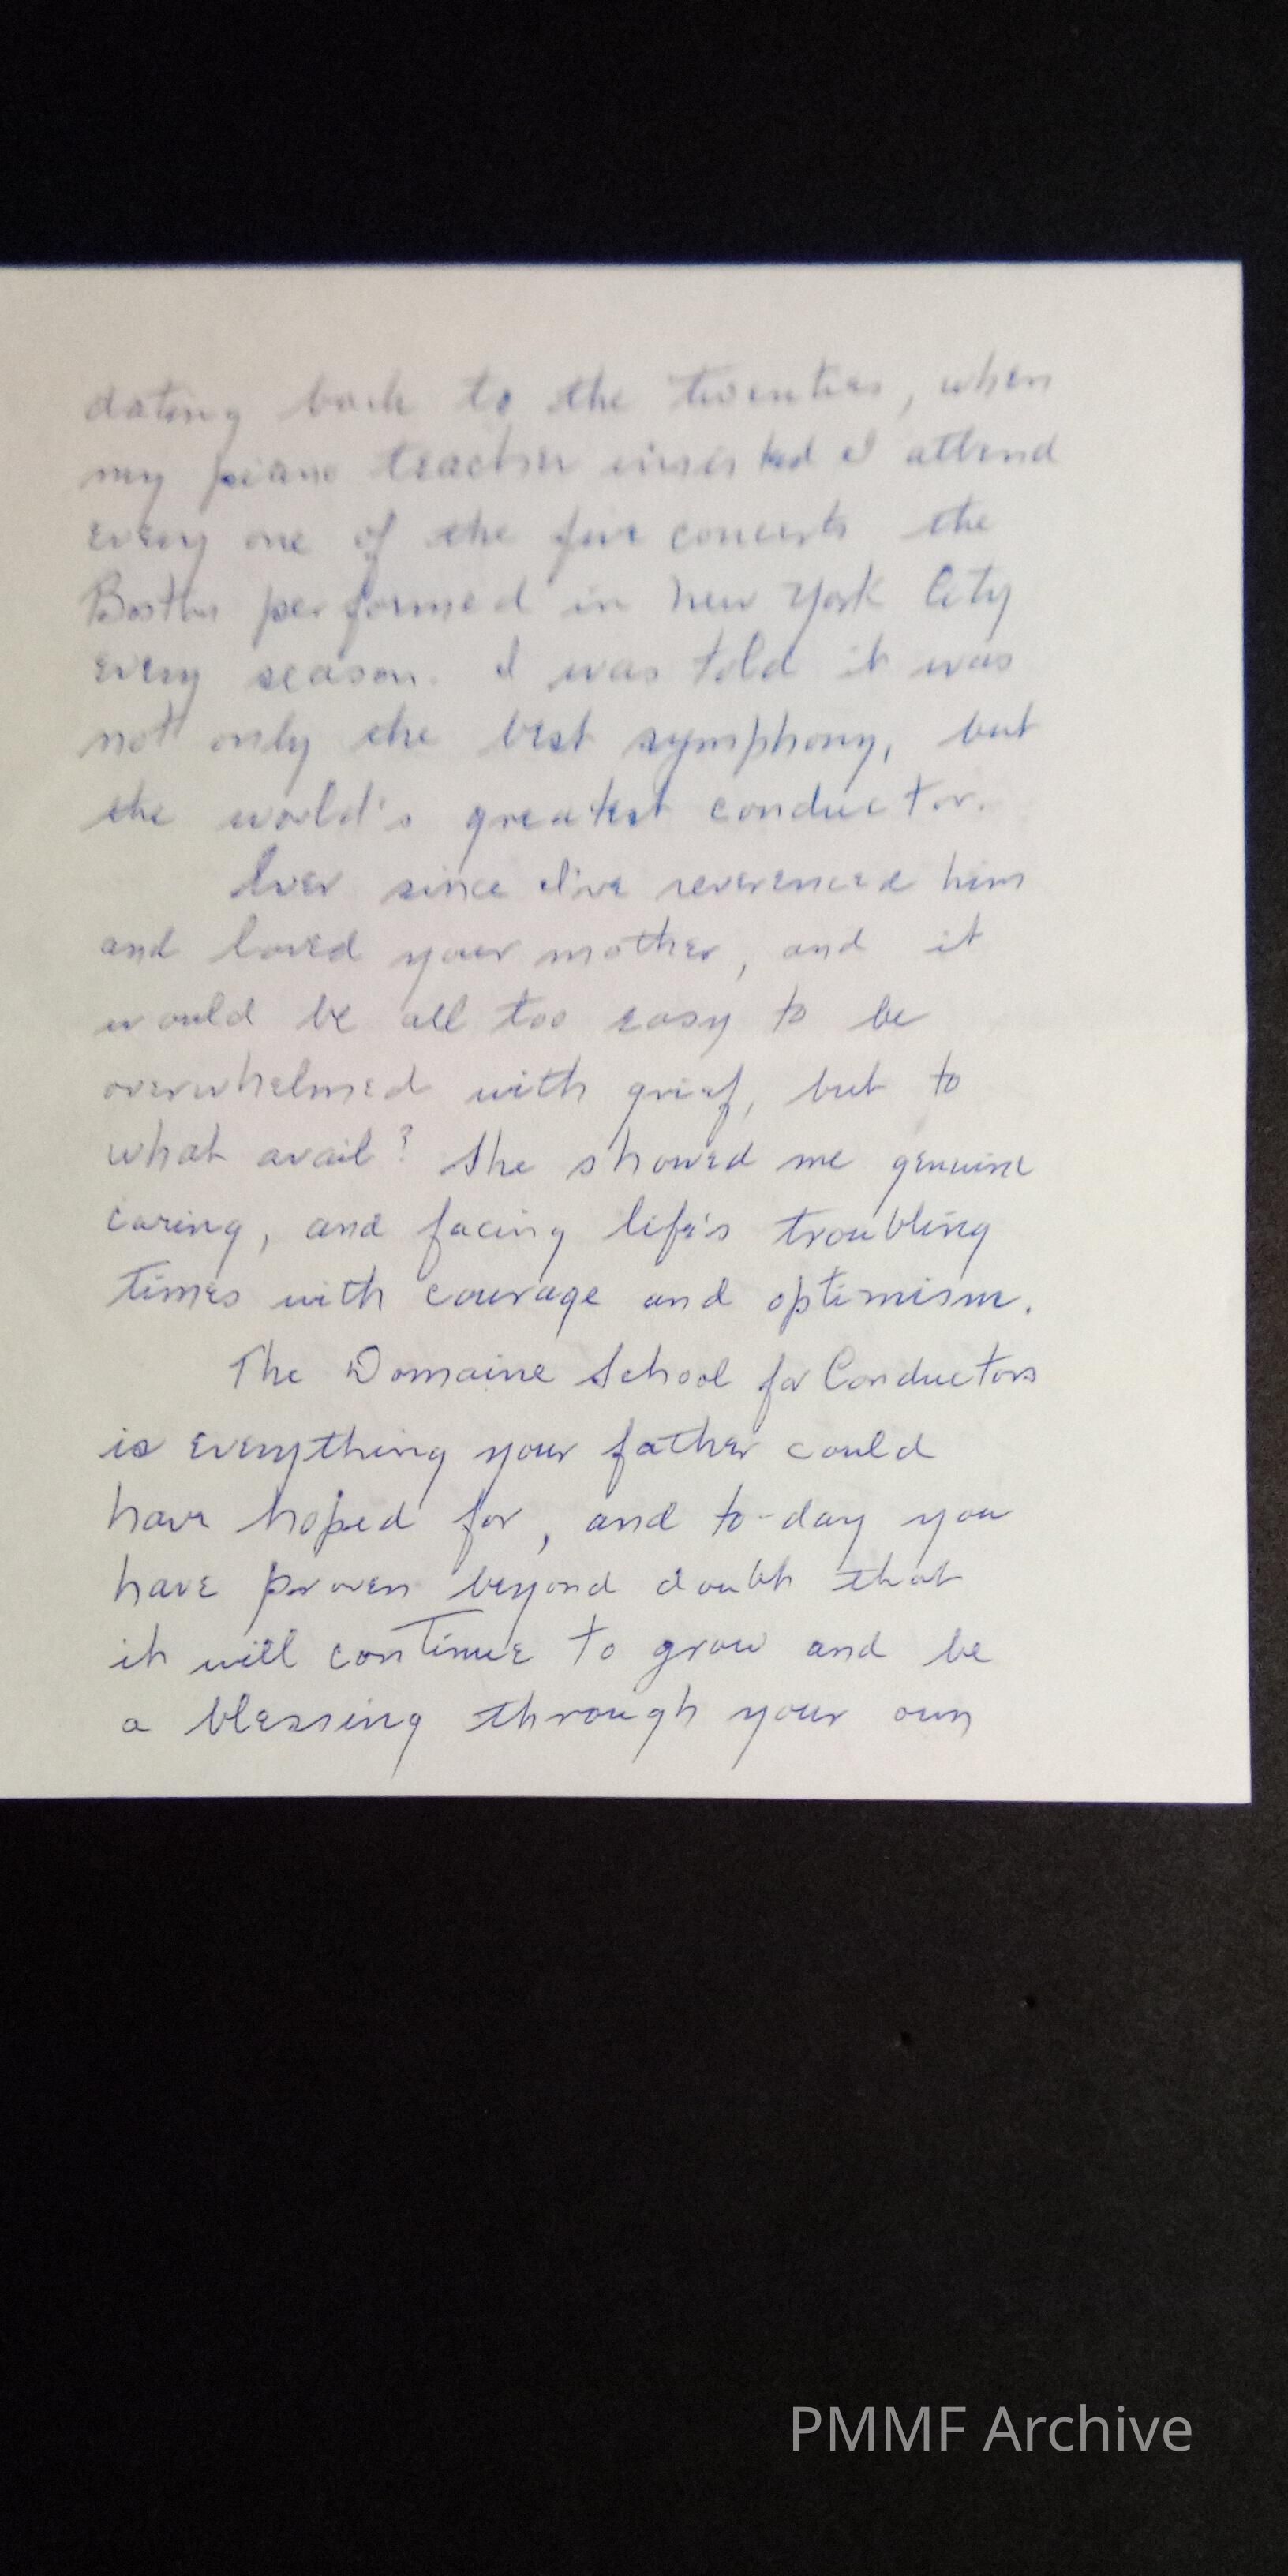 dating back to the twenties, when
my piano teacher insisted I attend
every one of the five concerts the
Boston performed in New York City
every season. I was told it was
not only the best symphony, but
the world's greatest conductor.
Ever since I've reverenced him
and loved your mother, and it
would be all too easy to be
overwhelmed with grief, but to
what avail? She showed me genuine
caring, and facing life's troubling
times with courage and optimism.
The Domaine School for Conductors
is everything your father could
have hoped for, and to-day you
have proven beyond doubt that
it will continue to grow and be
a blessing through your own
PMMF Archive